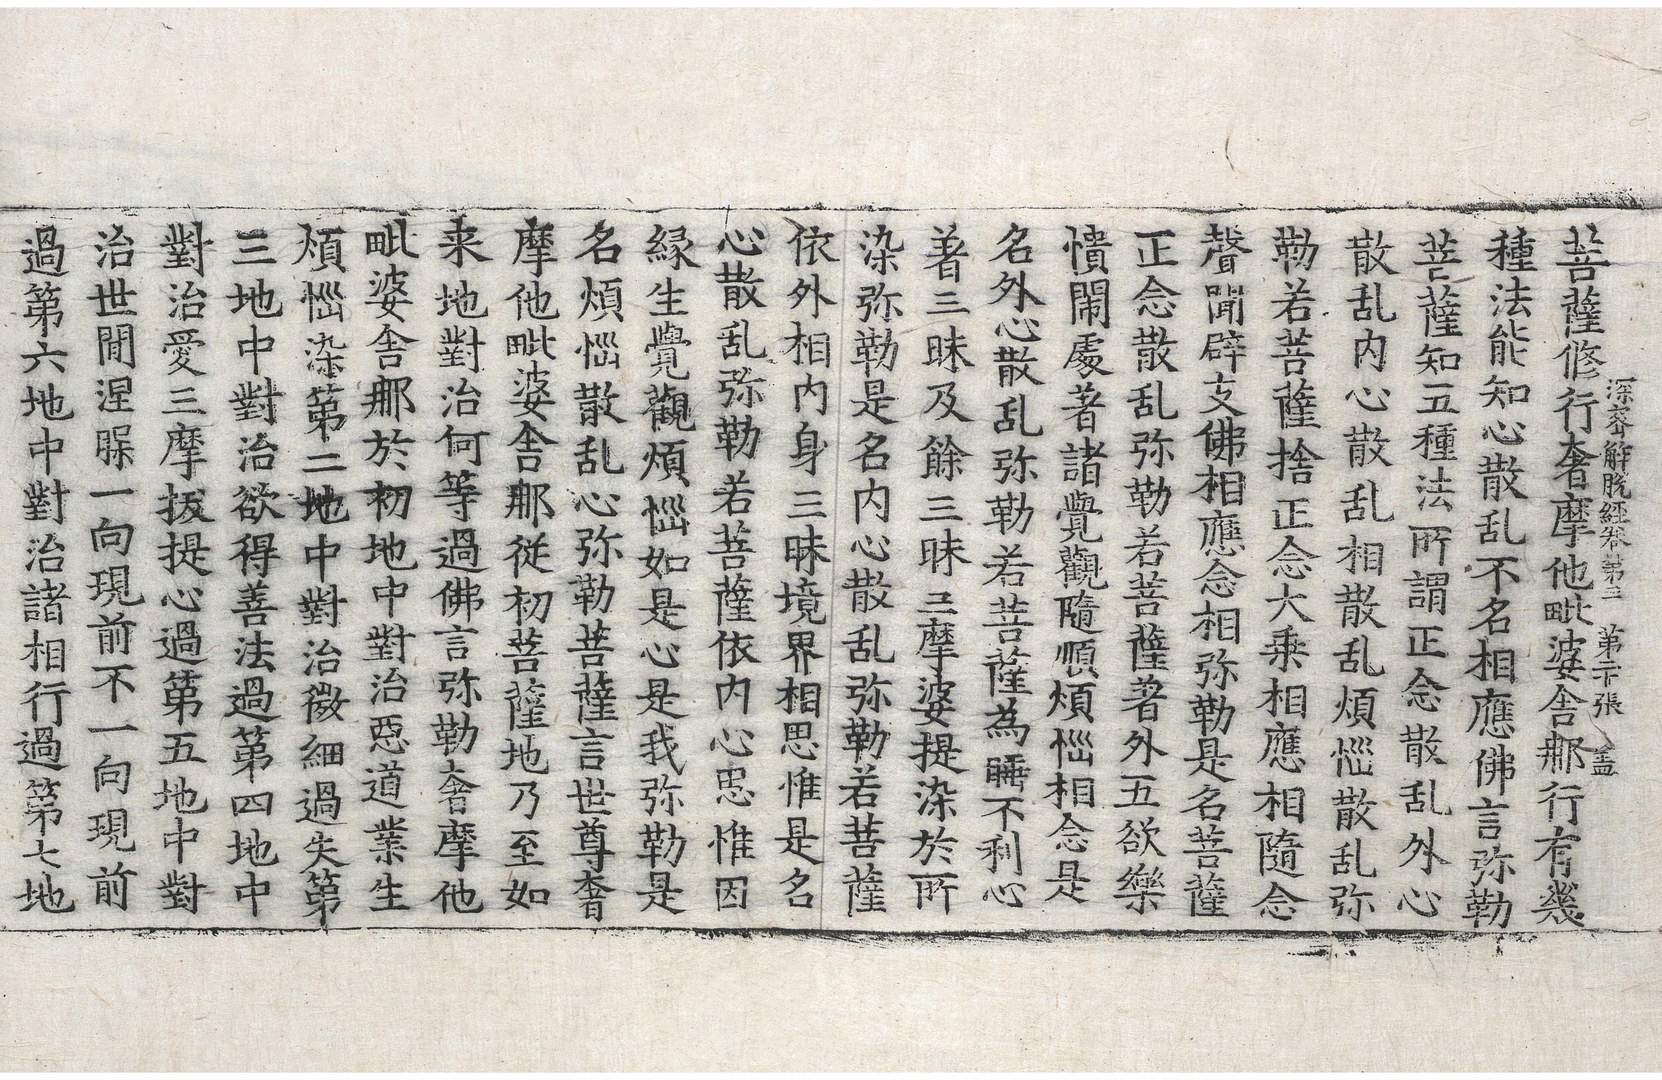 深密解脱經卷第三 第二十張 盖
菩薩修行奢摩他毗婆舍那行有幾
種法能知心散乱不名相應佛言弥勒
菩薩知五種法所謂正念散乱外心
散乱内心散乱相散乱煩惱散乱弥
勒若菩薩捨正念大乘相應相隨念
聲聞辟支佛相應念相弥勒是名菩薩
正念散乱弥勒若菩薩著外五欲樂
憒閙處著諸覺觀隨順煩惱相念是
名外心散乱弥勒若菩薩為睡不利心
著三昧及餘三昧三摩婆提染於所
染弥勒是名内心散乱弥勒若菩薩
依外相内身三昧境界相思惟是名
心散乱弥勒若菩薩依内心思惟因
縁生覺觀煩惱如是心是我弥勒是
名煩惱散乱心弥勒菩薩言世尊奢
摩他毗婆舍那従初菩薩地乃至如
来地對治何等過佛言弥勒奢摩他
毗婆舍那於初地中對治惡道業生
煩惱染第二地中對治微細過失第
三地中對治欲得善法過第四地中
對治愛三摩拔提心過第五地中對
治世間涅槃一向現前不一向現前
過第六地中對治諸相行過第七地